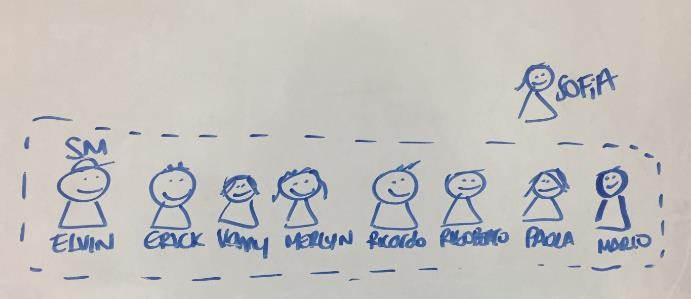 SOFIA
SM
ELVIN ERICK VANNY MERLYN RICARDO RIGOBERTO PAOLA MARIO